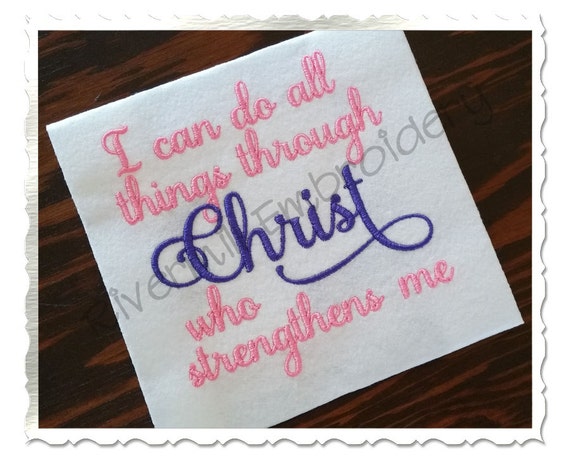 I can do all
things through
Christ
who
strengthens me
Rivermill Embroidery